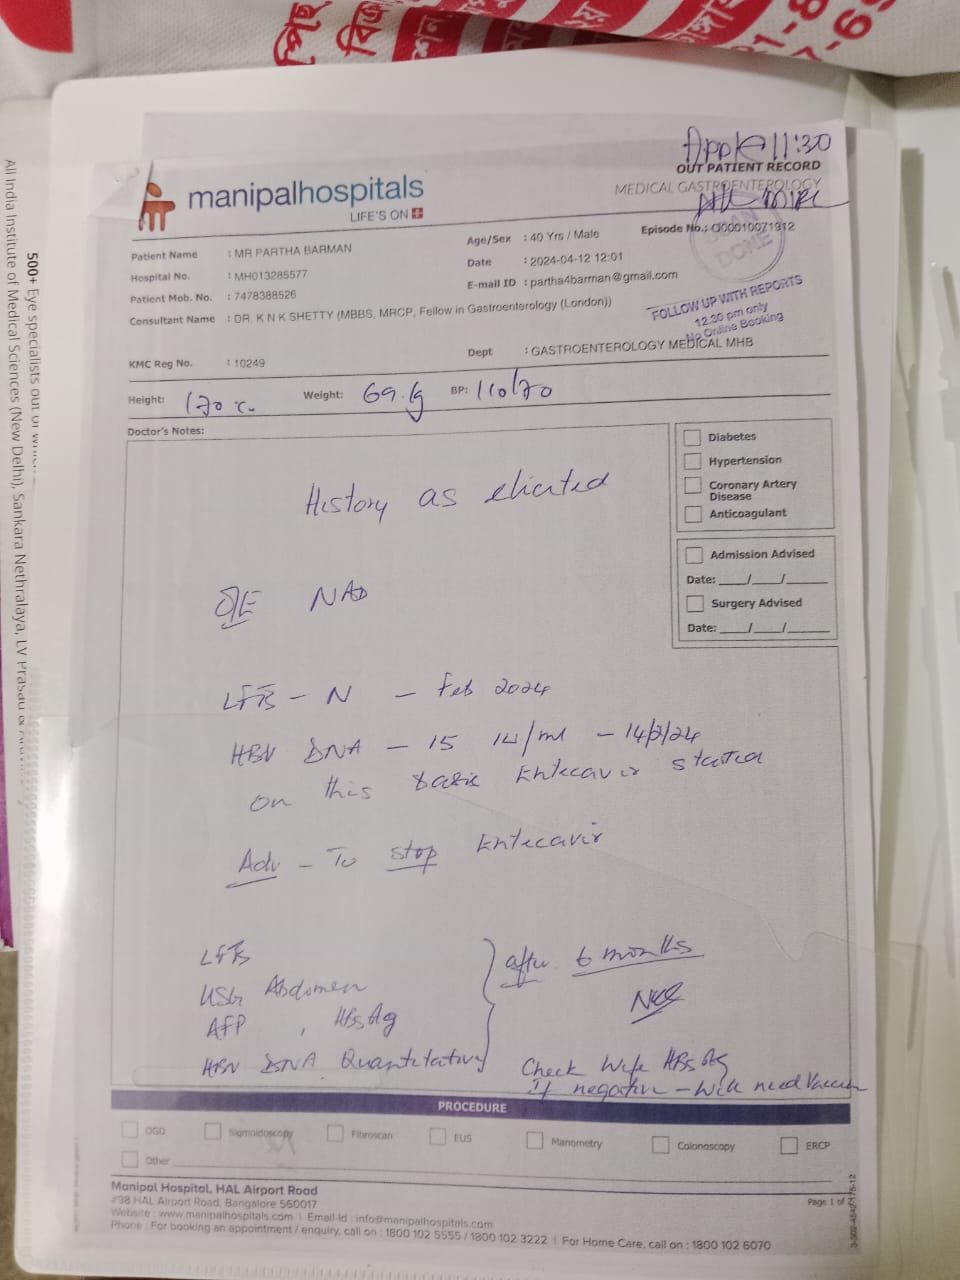 500+ Eye specialists out of
All India Institute of Medical Sciences (New Delhi), Sankara Nethralaya, LV Prasad
App @ 11:30
OUT PATIENT RECORD
manipalhospitals
LIFE'S ON
MEDICAL GASTROENTEROLOGY
DONE
Patient Name : MR PARTHA BARMAN
Age/Sex : 40 Yrs / Male
Episode No.: O00010071912
Hospital No. : MH013285577
Date : 2024-04-12 12:01
Patient Mob. No. : 7478388526
E-mail ID : partha4barman@gmail.com
Consultant Name : DR. K N K SHETTY (MBBS, MRCP, Fellow in Gastroenterology (London))
FOLLOW UP WITH REPORTS
12.30 pm only
No Online Booking
KMC Reg No. : 10249
Dept : GASTROENTEROLOGY MEDICAL MHB
Height: 170 c. Weight: 69 kg BP: 110/70
Doctor's Notes:
Diabetes
Hypertension
Coronary Artery
Disease
Anticoagulant
Admission Advised
Date: ___/___/_____
Surgery Advised
Date: ___/___/_____
History as elicited
O/E NAD
LFTs - N - Feb 2024
HBV DNA - 15 IU/ml - 14/2/24
on this basis Entecavir started
Adv - To stop Entecavir
LFTs
USG Abdomen
AFP , HBsAg
HBV DNA Quantitative
after 6 months
Check Wife HBsAg
if negative - will need Vaccine
PROCEDURE
OGD Sigmoidoscopy Fibroscan EUS Manometry Colonoscopy ERCP
Other
Manipal Hospital, HAL Airport Road
#98 HAL Airport Road, Bangalore 560017
Website : www.manipalhospitals.com | Email-Id : info@manipalhospitals.com
Phone : For booking an appointment / enquiry, call on : 1800 102 5555 / 1800 102 3222 | For Home Care, call on : 1800 102 6070
Page 1 of